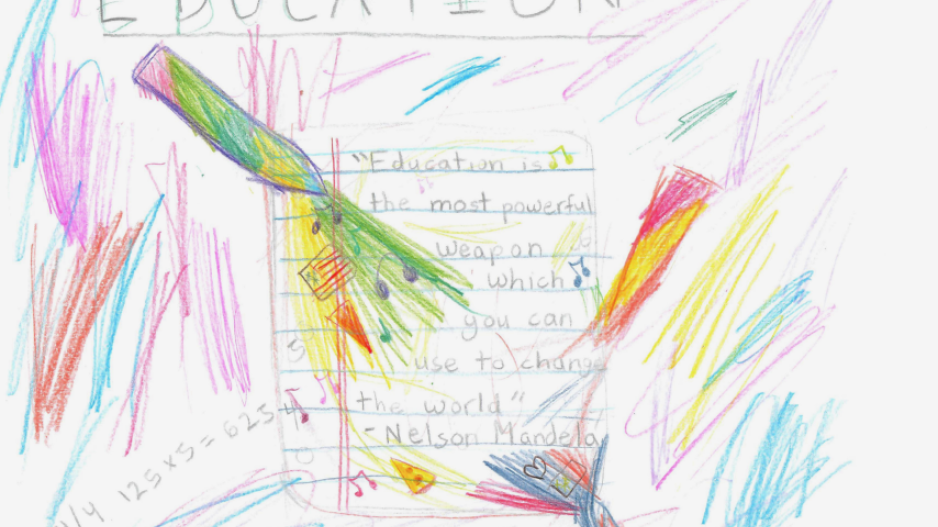 EDUCATION
"Education is
the most powerful
weapon
which
you can
use to change
the world"
-Nelson Mandela
125 x 5 = 625